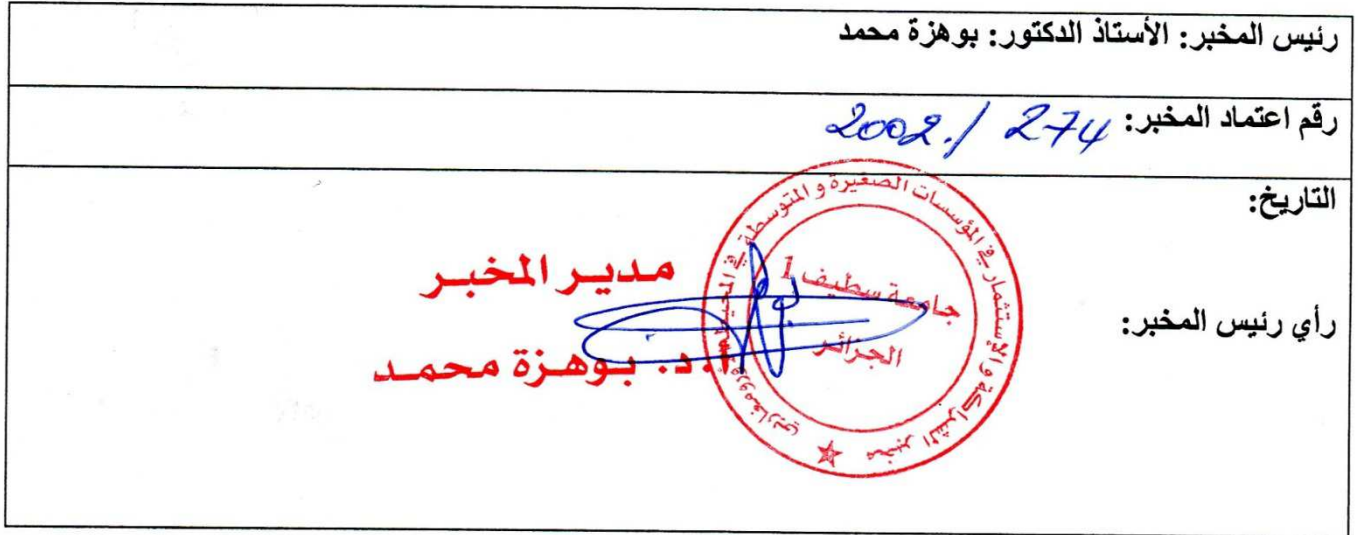 رئيس المخبر: الأستاذ الدكتور: بوهزة محمد
رقم اعتماد المخبر: 274 / 2002
التاريخ:
رأي رئيس المخبر:
مدير المخبر
أ.د. بوهزة محمد
مخبر الشراكة و الإستثمار في المؤسسات الصغيرة و المتوسطة في
جامعة سطيف 1
الجزائر